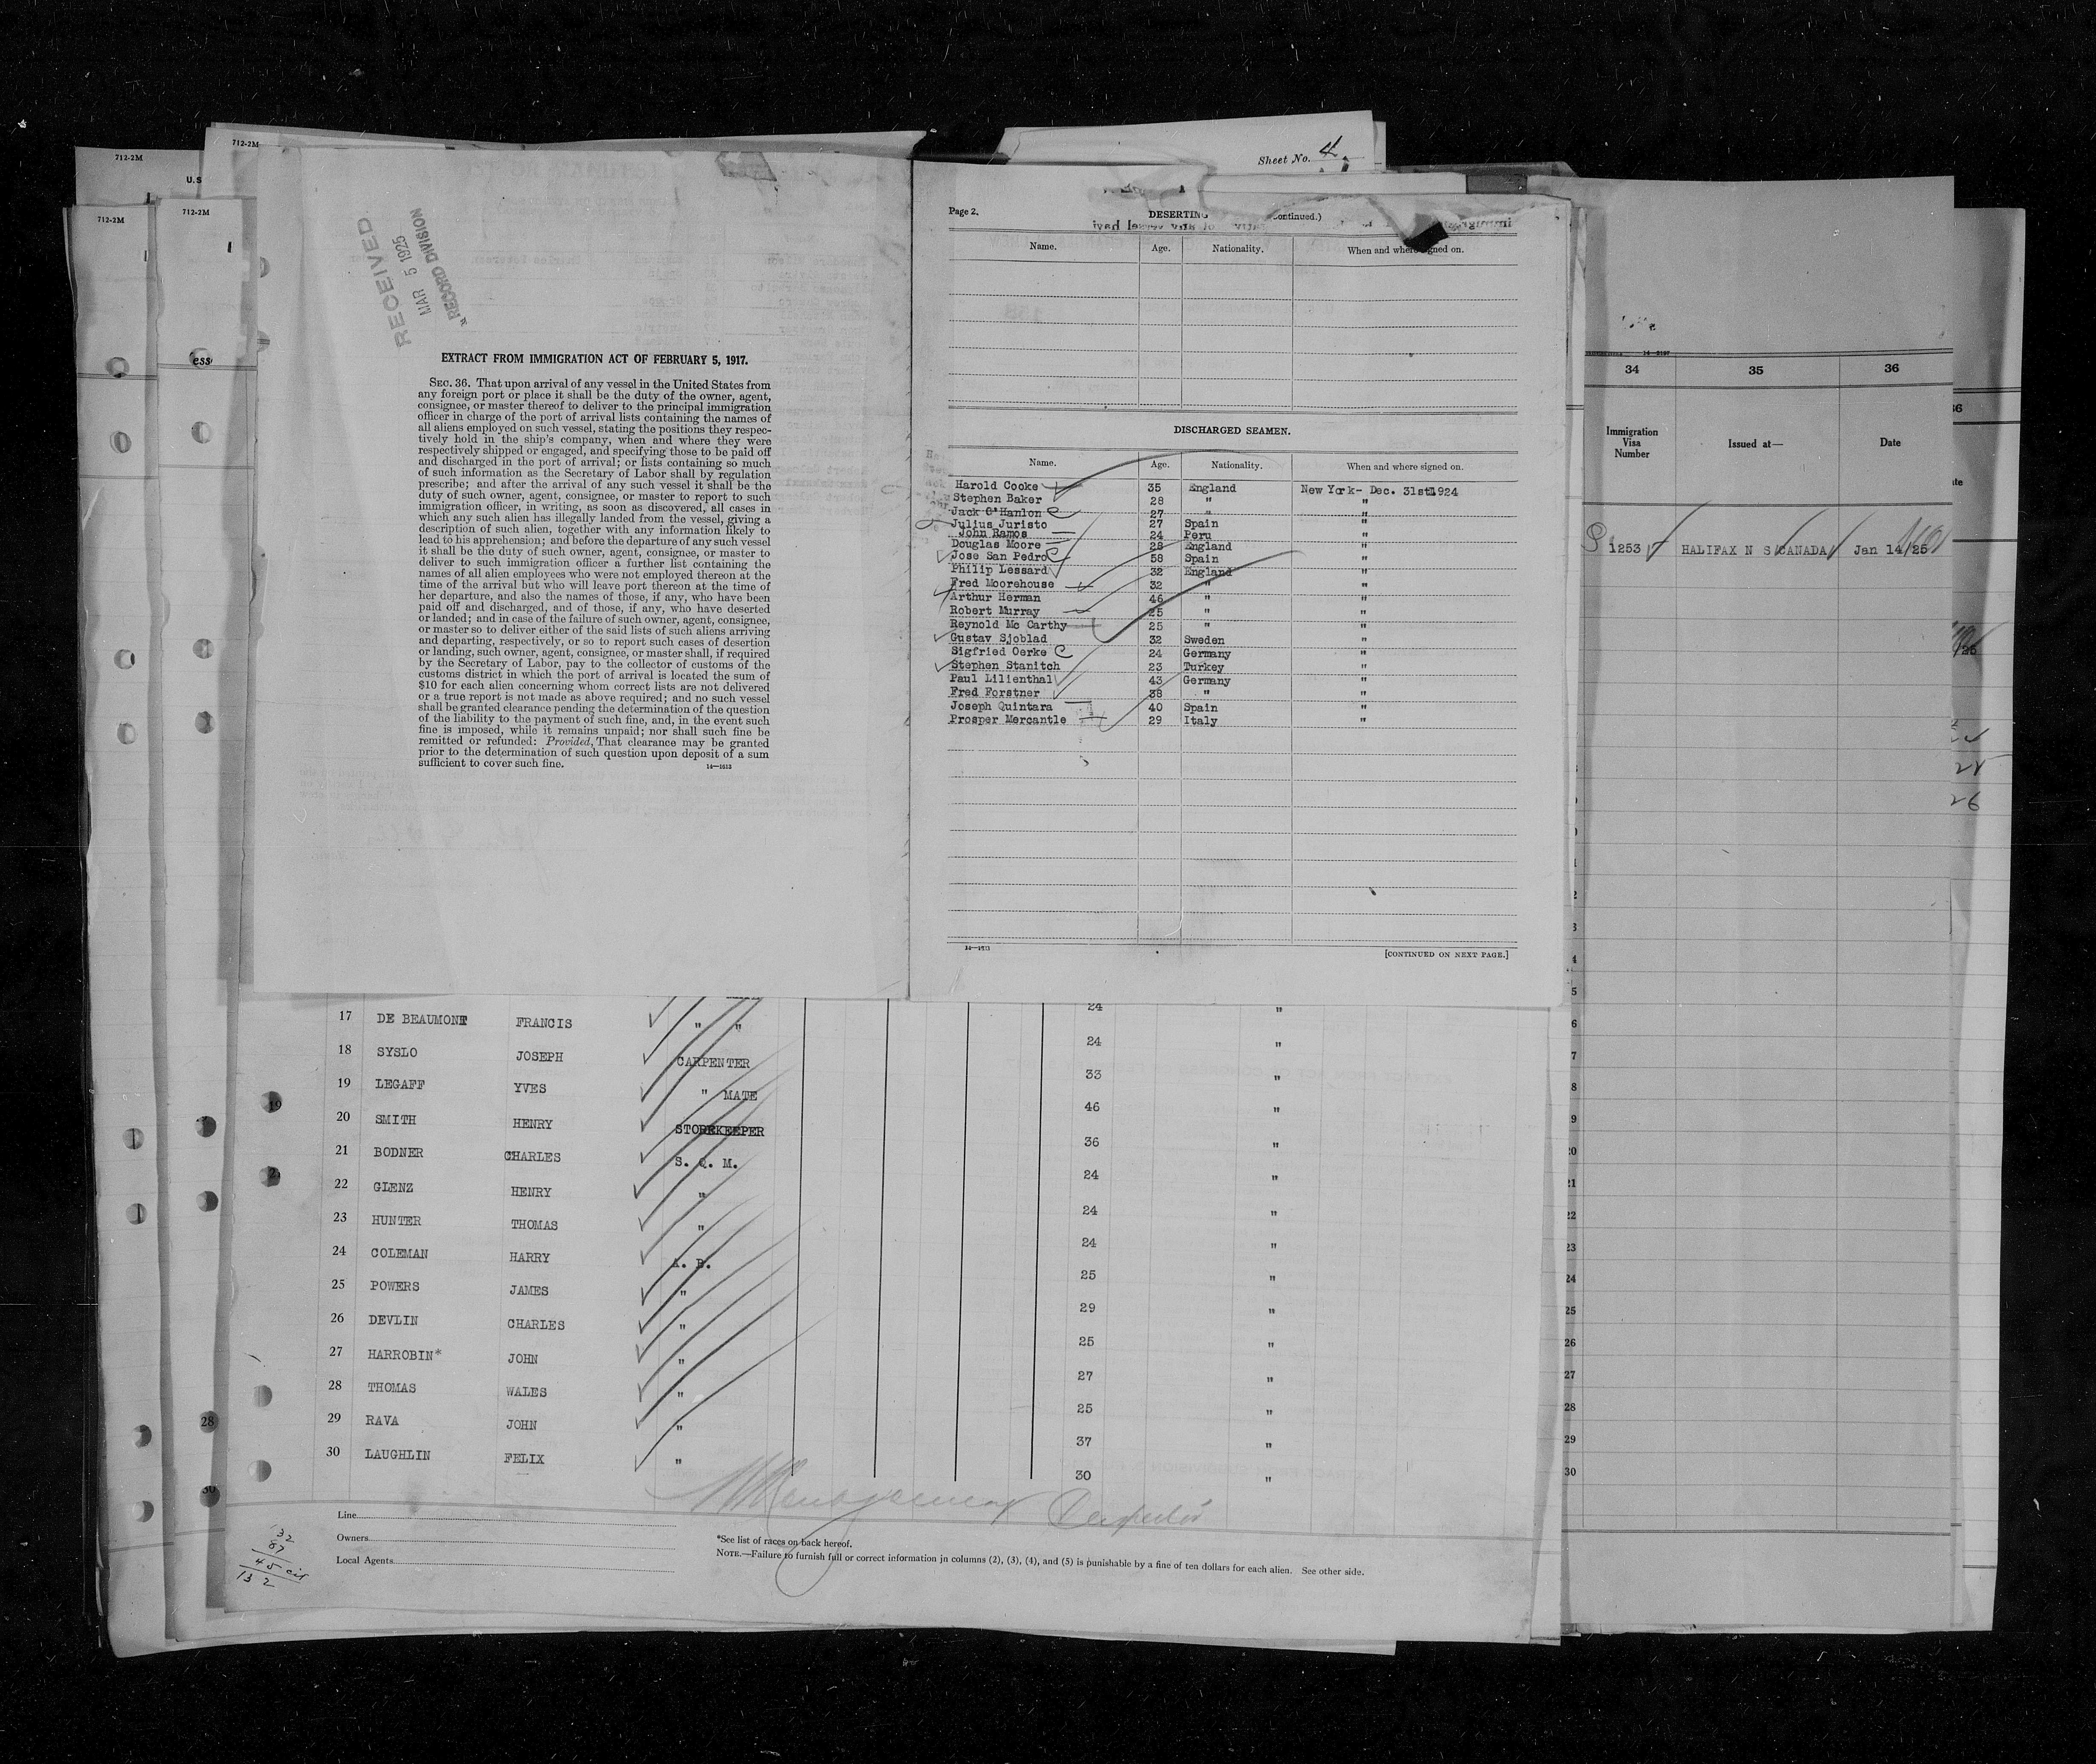 712-2M
712-2M
U.S
712-2M
712-2M
ess
Sheet No. 4.
RECEIVED
MAR 5 1925
RECORD DIVISION
EXTRACT FROM IMMIGRATION ACT OF FEBRUARY 5, 1917.
SEC. 36. That upon arrival of any vessel in the United States from
any foreign port or place it shall be the duty of the owner, agent,
consignee, or master thereof to deliver to the principal immigration
officer in charge of the port of arrival lists containing the names of
all aliens employed on such vessel, stating the positions they respec-
tively hold in the ship's company, when and where they were
respectively shipped or engaged, and specifying those to be paid off
and discharged in the port of arrival; or lists containing so much
of such information as the Secretary of Labor shall by regulation
prescribe; and after the arrival of any such vessel it shall be the
duty of such owner, agent, consignee, or master to report to such
immigration officer, in writing, as soon as discovered, all cases in
which any such alien has illegally landed from the vessel, giving a
description of such alien, together with any information likely to
lead to his apprehension; and before the departure of any such vessel
it shall be the duty of such owner, agent, consignee, or master to
deliver to such immigration officer a further list containing the
names of all alien employees who were not employed thereon at the
time of the arrival but who will leave port thereon at the time of
her departure, and also the names of those, if any, who have been
paid off and discharged, and of those, if any, who have deserted
or landed; and in case of the failure of such owner, agent, consignee,
or master so to deliver either of the said lists of such aliens arriving
and departing, respectively, or so to report such cases of desertion
or landing, such owner, agent, consignee, or master shall, if required
by the Secretary of Labor, pay to the collector of customs of the
customs district in which the port of arrival is located the sum of
$10 for each alien concerning whom correct lists are not delivered
or a true report is not made as above required; and no such vessel
shall be granted clearance pending the determination of the question
of the liability to the payment of such fine, and, in the event such
fine is imposed, while it remains unpaid; nor shall such fine be
remitted or refunded: Provided, That clearance may be granted
prior to the determination of such question upon deposit of a sum
sufficient to cover such fine.
14—1613
Page 2. DESERTING ontinued.)
Name. Age. Nationality. When and where signed on.
DISCHARGED SEAMEN.
Name. Age. Nationality. When and where signed on.
Harold Cooke 35 England New York- Dec. 31st 1924
Stephen Baker 28 " "
Jack O'Hanlon 27 " "
Julius Juristo 27 Spain "
John Ramos 24 Peru "
Douglas Moore 28 England "
Jose San Pedro 58 Spain "
Philip Lessard 32 England "
Fred Moorehouse 32 " "
Arthur Herman 46 " "
Robert Murray 25 " "
Reynold Mc Carthy 25 " "
Gustav Sjoblad 32 Sweden "
Sigfried Oerke 24 Germany "
Stephen Stanitch 23 Turkey "
Paul Lilienthal 43 Germany "
Fred Forstner 38 " "
Joseph Quintara 40 Spain "
Prosper Mercantle 29 Italy "
[CONTINUED ON NEXT PAGE.]
34 35 36
Immigration Visa Number Issued at— Date
1253 HALIFAX N S CANADA Jan 14/25
24 "
17 DE BEAUMONT FRANCIS " " 24 "
18 SYSLO JOSEPH CARPENTER 33 "
19 LEGAFF YVES " MATE 46 "
20 SMITH HENRY STOREKEEPER 36 "
21 BODNER CHARLES S. Q. M. 24 "
22 GLENZ HENRY " 24 "
23 HUNTER THOMAS " 24 "
24 COLEMAN HARRY A. B. 25 "
25 POWERS JAMES " 29 "
26 DEVLIN CHARLES " 25 "
27 HARROBIN* JOHN " 27 "
28 THOMAS WALES " 25 "
29 RAVA JOHN " 37 "
30 LAUGHLIN FELIX " 30 "
19
20
21
22
23
24
25
26
27
28
29
30
Line
Owners
Local Agents
*See list of races on back hereof.
NOTE.—Failure to furnish full or correct information in columns (2), (3), (4), and (5) is punishable by a fine of ten dollars for each alien. See other side.
32
87
45
132
28
30